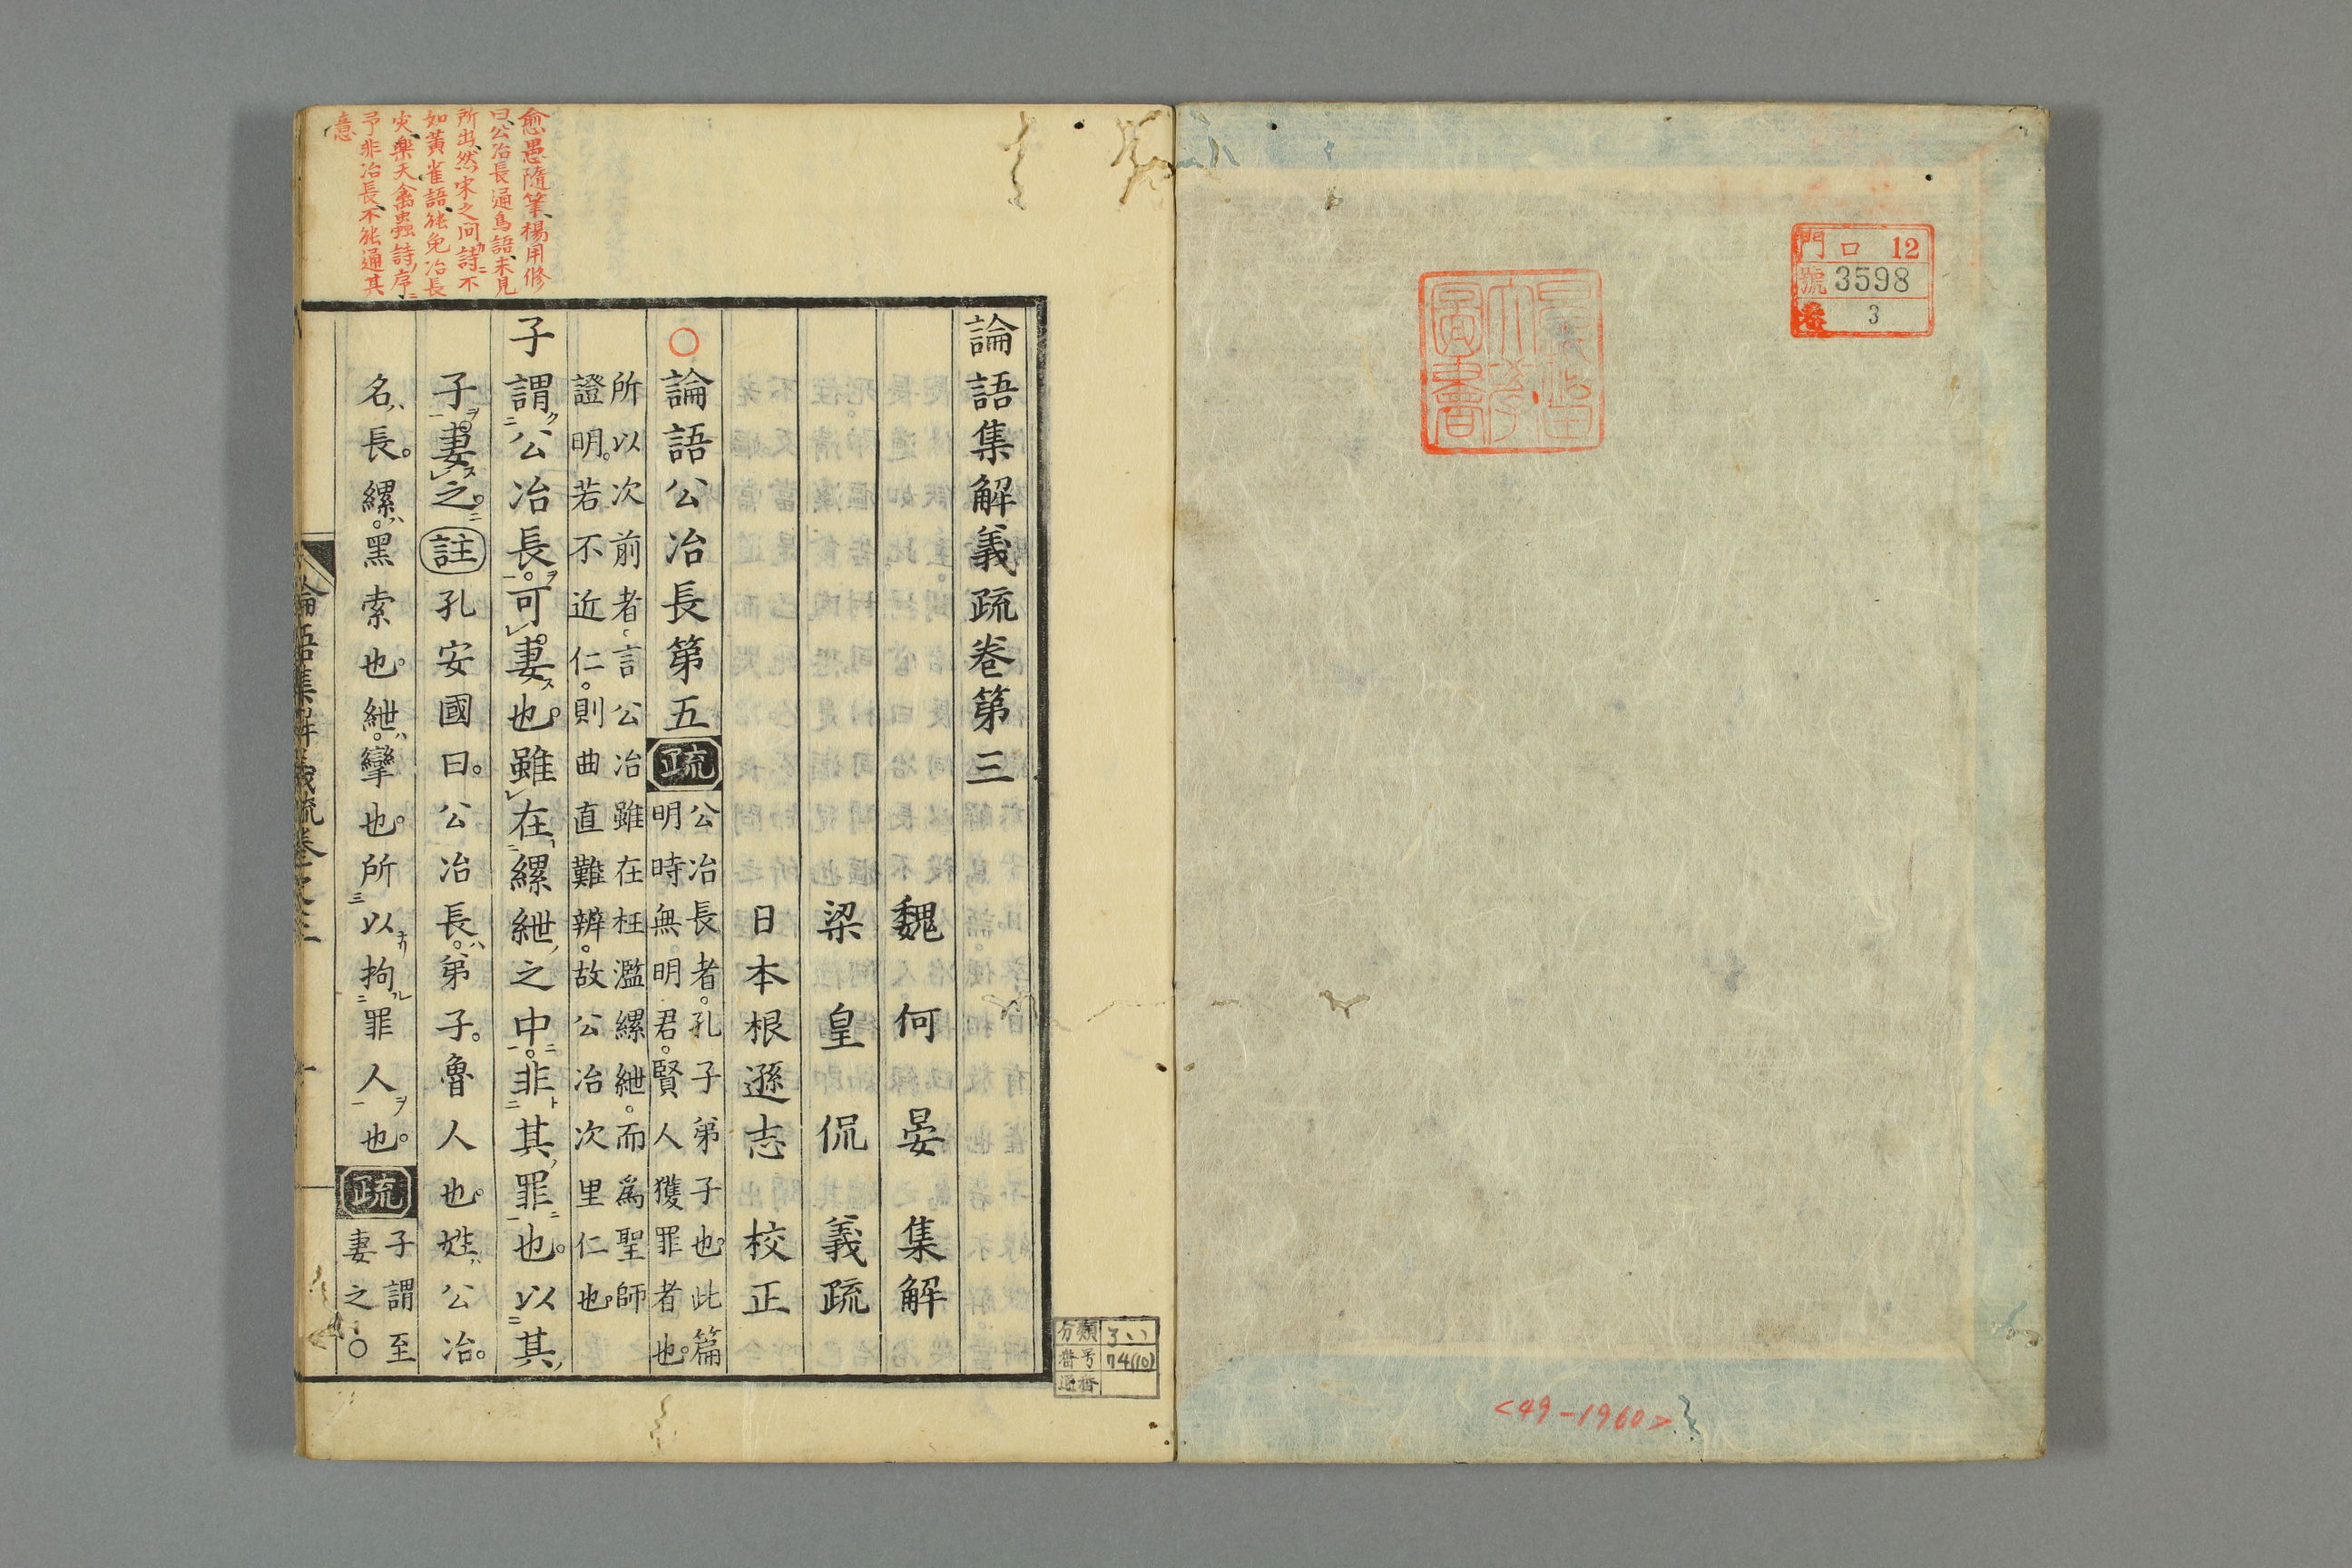 門 口 12
號 3598
番 3
圖書
<49-1960>
分類
番号 74(10)
論語集解義疏卷第三
魏 何 晏 集解
梁 皇 侃 義疏
日本根遜志 校正
○論語公冶長第五 疏 公冶長者。孔子弟子也。此篇
明時無明君。賢人獲罪者也。
所以次前者、言公冶雖在枉濫縲紲。而爲聖師
證明。若不近仁。則曲直難辨。故公冶次里仁也。
子謂公冶長。可妻也。雖在縲紲之中。非其罪也。以其
子妻之。註孔安國曰。公冶長。弟子。魯人也。姓公冶。
名長。縲。黑索也。紲。攣也。所以拘罪人也。疏 子謂至
妻之○
愈愚隨筆、楊用修
曰、公冶長通鳥語、未見
所出、然宋之問詩ニ不
如黃雀語、能免冶長
灾、樂天禽蟲詩ノ序ニ
予非冶長、不能通其
意
論語集解義疏卷之三